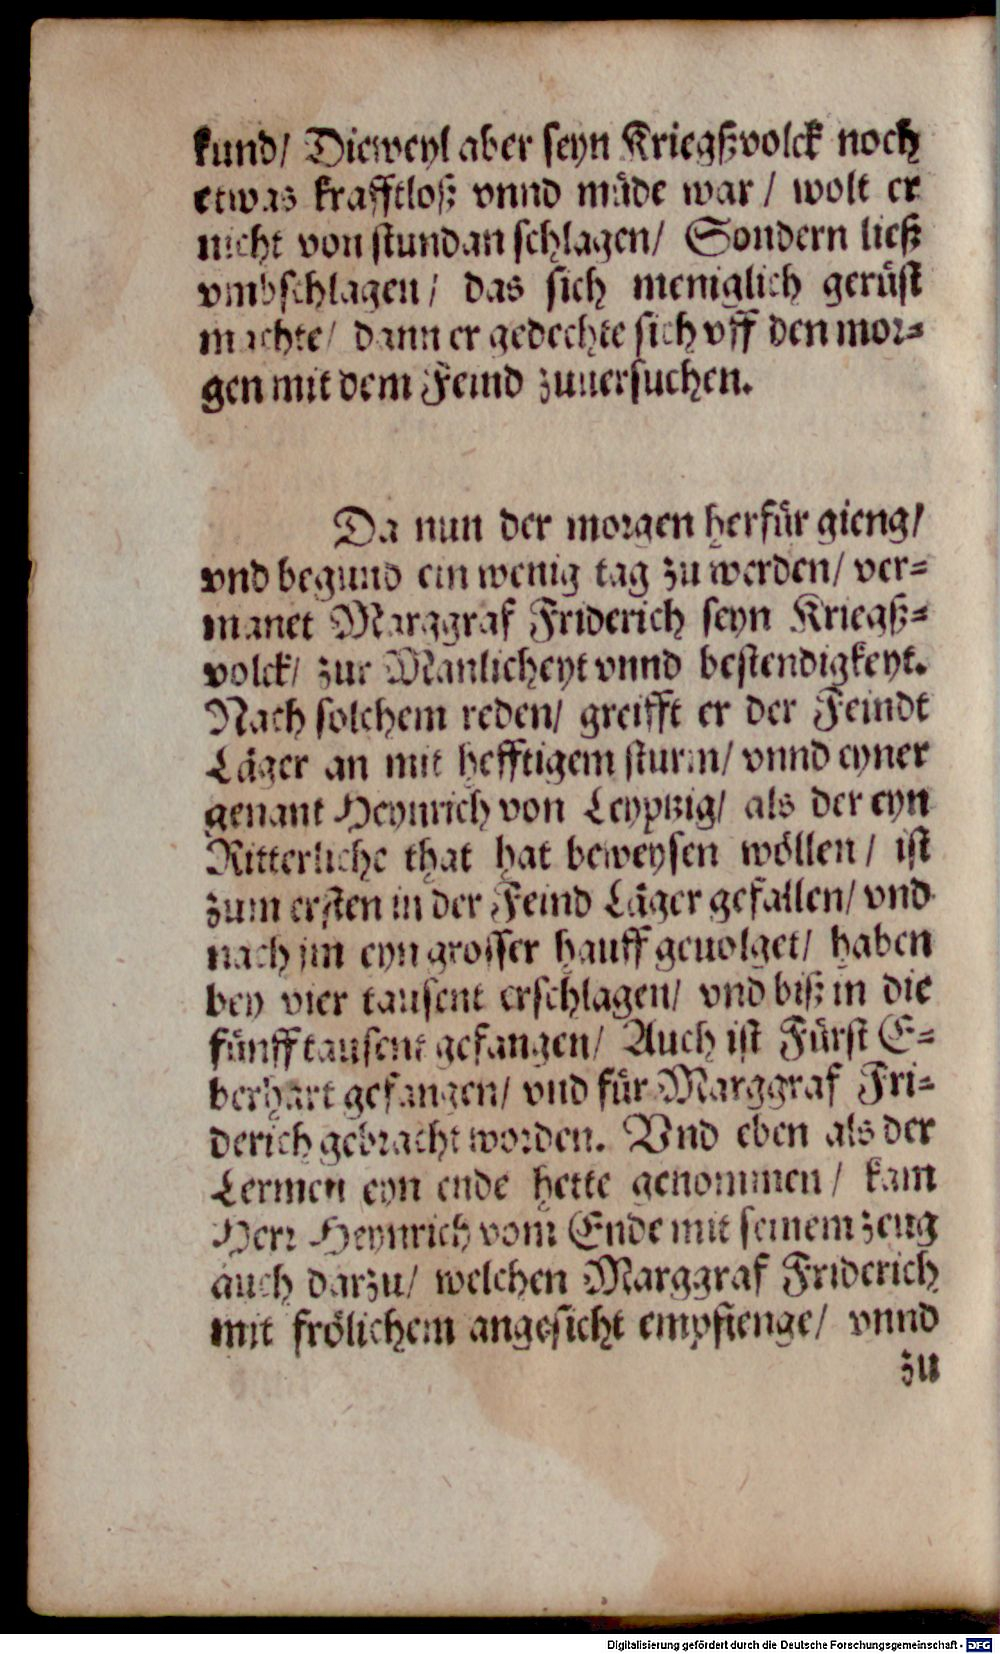 kund/ Dieweyl aber seyn Kriegßvolck noch
etwas krafftloß vnnd müde war / wolt er
nicht von stundan schlagen/ Sondern ließ
vmbschlagen / das sich meniglich gerüst
machte/ dann er gedechte sich vff den mor-
gen mit dem Feind zuuersuchen.
Da nun der morgen herfür gieng/
vnd begund ein wenig tag zu werden/ ver-
manet Marggraf Friderich seyn Kriegß-
volck/ zur Manlicheyt vnnd bestendigkeyt.
Nach solchem reden/ greifft er der Feindt
Läger an mit hefftigem sturm/ vnnd eyner
genant Heynrich von Leyptzig/ als der eyn
Ritterliche that hat beweysen wöllen / ist
zum ersten in der Feind Läger gefallen/ vnd
nach jm eyn grosser hauff geuolget/ haben
bey vier tausent erschlagen/ vnd biß in die
fünff tausent gefangen/ Auch ist Fürst E-
berhart gefangen/ vnd für Marggraf Fri-
derich gebracht worden. Vnd eben als der
Lermen eyn ende hette genommen / kam
Herr Heynrich vom Ende mit seinem zeug
auch darzu/ welchen Marggraf Friderich
mit frölichem angesicht empfienge/ vnnd
zu
Digitalisierung gefördert durch die Deutsche Forschungsgemeinschaft - DFG